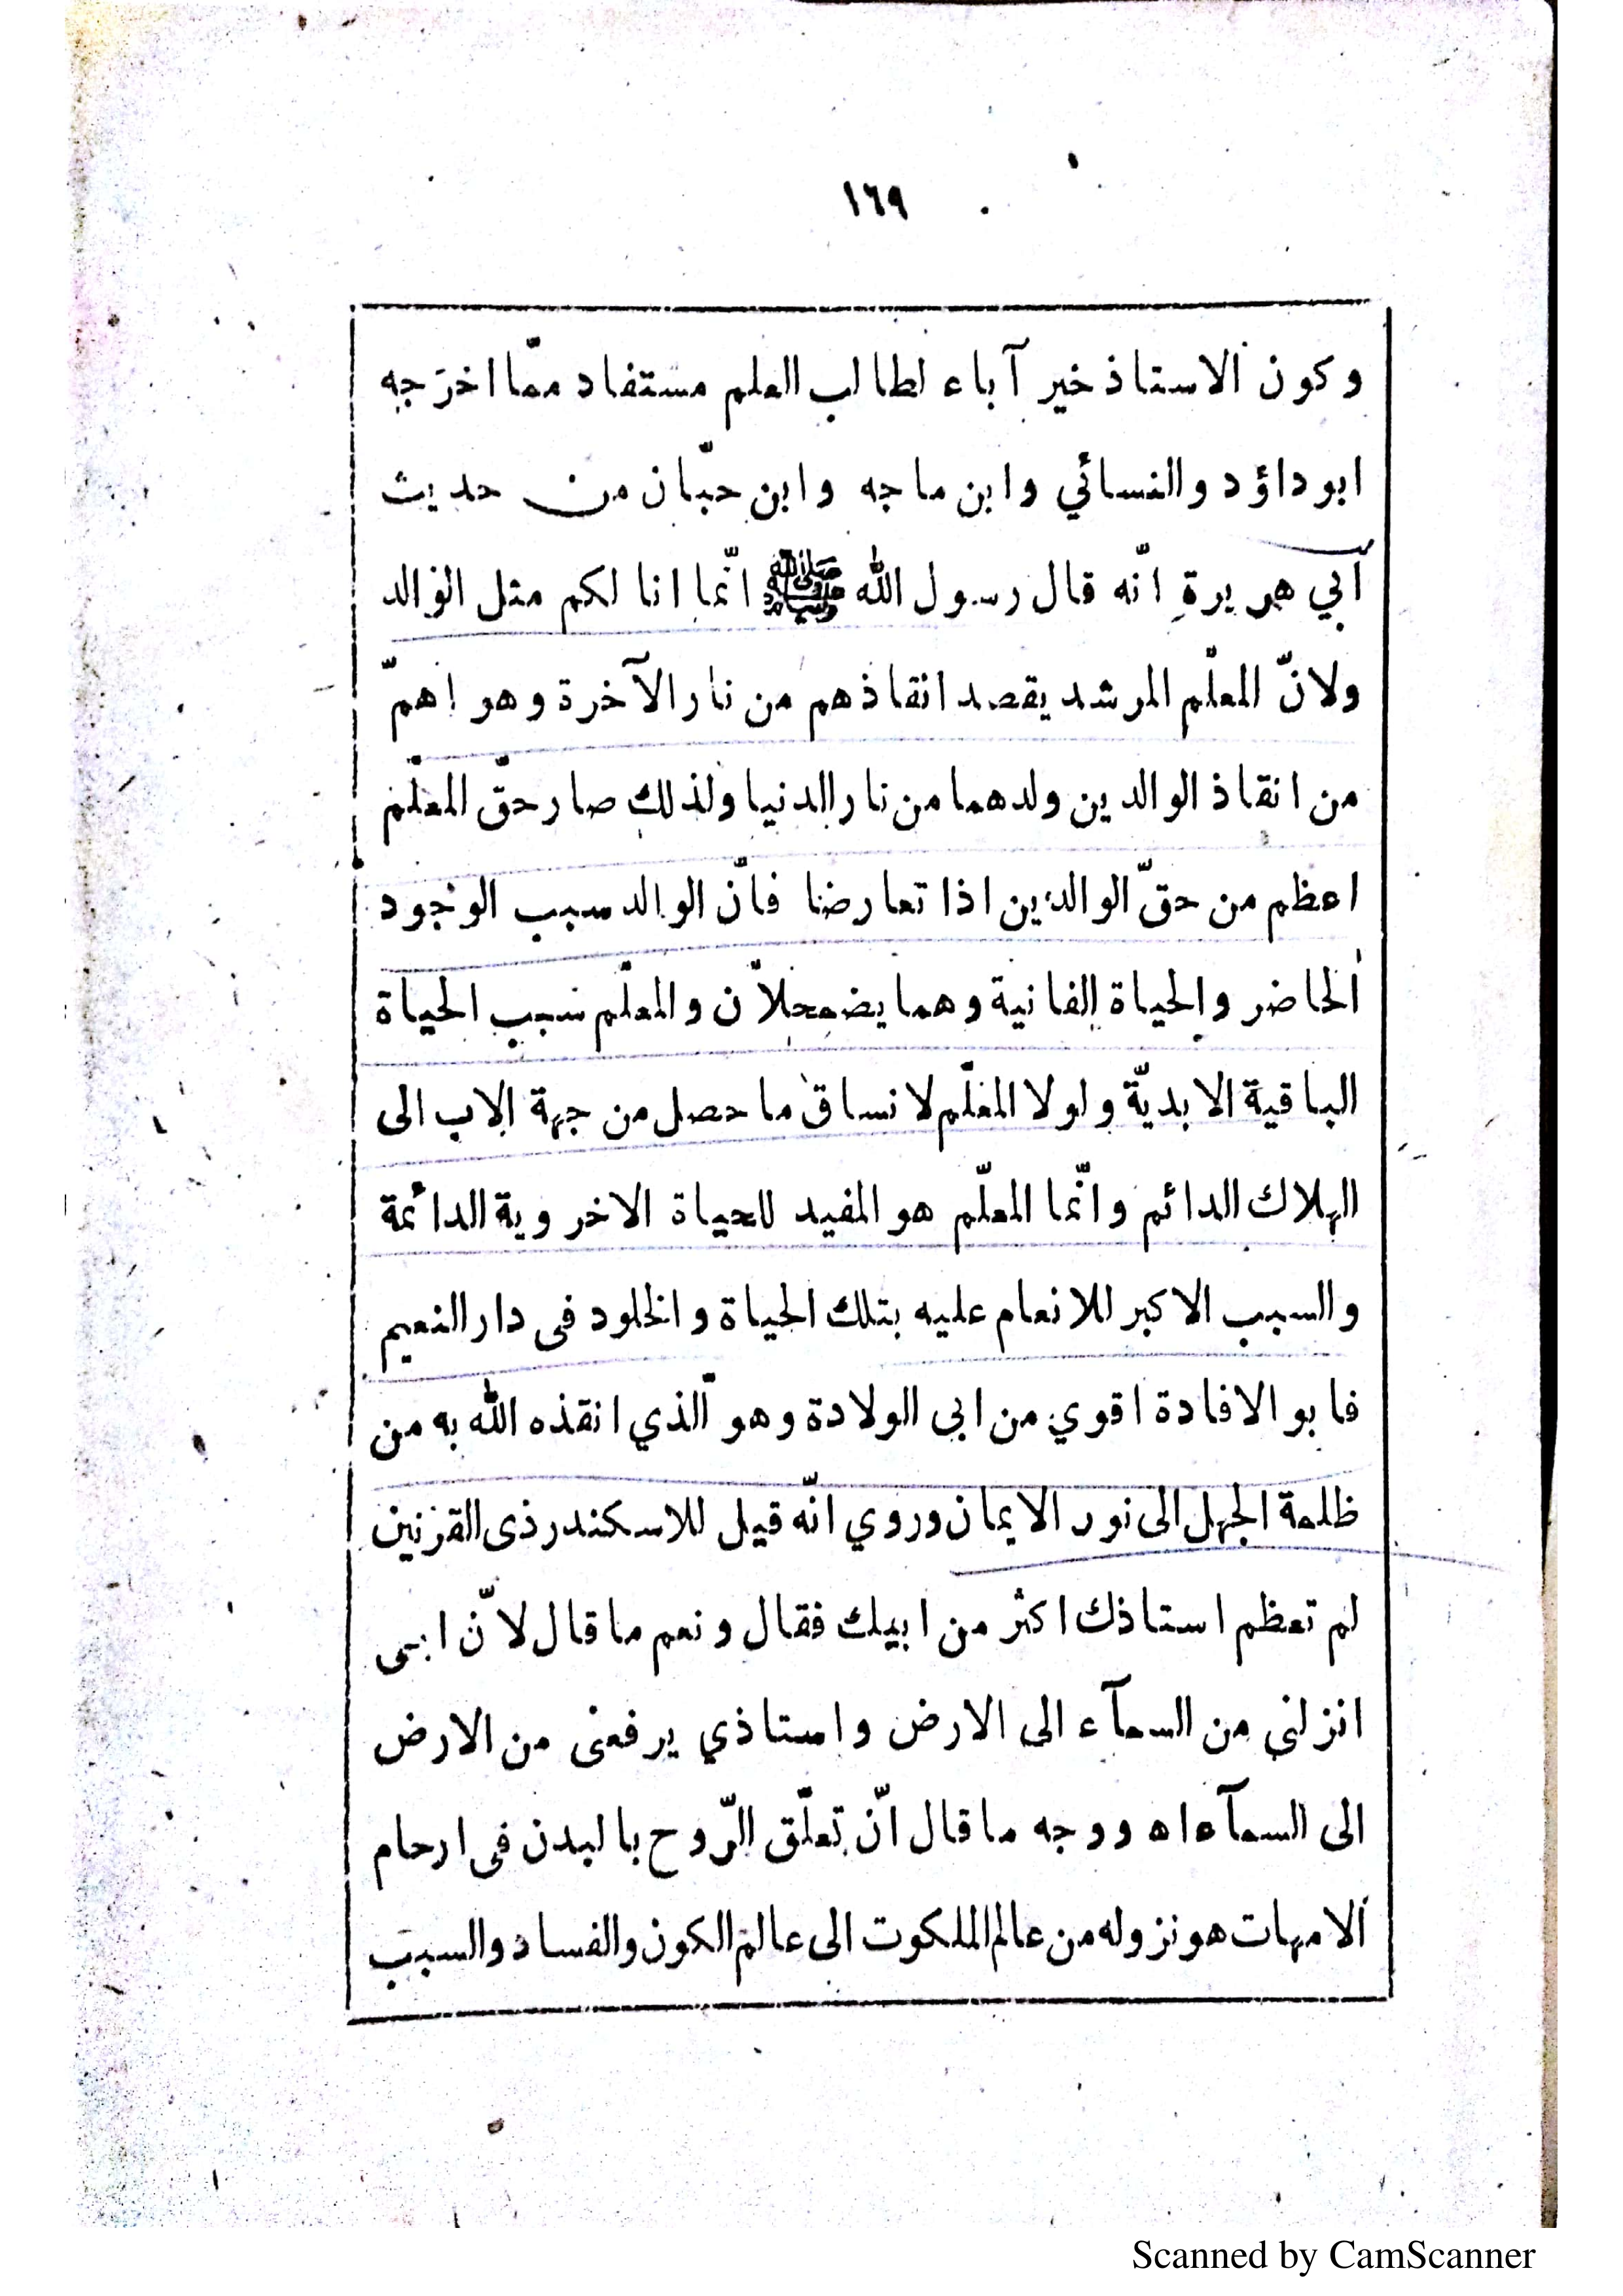 ١٦٩
وكون الاستاذ خير آباء لطالب العلم مستفاد ممّا اخرجه
ابوداؤد والنسائي وابن ماجه وابن حبّان من حديث
أبي هريرة انّه قال رسول الله ﷺ انّما انا لكم مثل الوالد
ولانّ المعلّم المرشد يقصد انقاذهم من نار الآخرة وهو اهمّ
من انقاذ الوالدين ولدهما من نار الدنيا ولذلك صار حقّ المعلّم
اعظم من حقّ الوالدين اذا تعارضا فانّ الوالد سبب الوجود
الحاضر والحياة الفانية وهما يضمحلاّن والمعلّم سبب الحياة
الباقية الابديّة ولولا المعلّم لانساق ما حصل من جهة الاب الى
الهلاك الدائم وانّما المعلّم هو المفيد للحياة الاخروية الدائمة
والسبب الاكبر للانعام عليه بتلك الحياة والخلود فى دار النعيم
فابو الافادة اقوي من ابى الولادة وهو الّذي انقذه الله به من
ظلمة الجهل الى نور الايمان وروي انّه قيل للاسكندر ذى القرنين
لم تعظم استاذك اكثر من ابيك فقال ونعم ما قال لانّ ابى
انزلني من السمآء الى الارض واستاذي يرفعنى من الارض
الى السمآء اه ووجه ما قال انّ تعلّق الرّوح بالبدن فى ارحام
الامهات هو نزوله من عالم الملكوت الى عالم الكون والفساد والسبب
Scanned by CamScanner